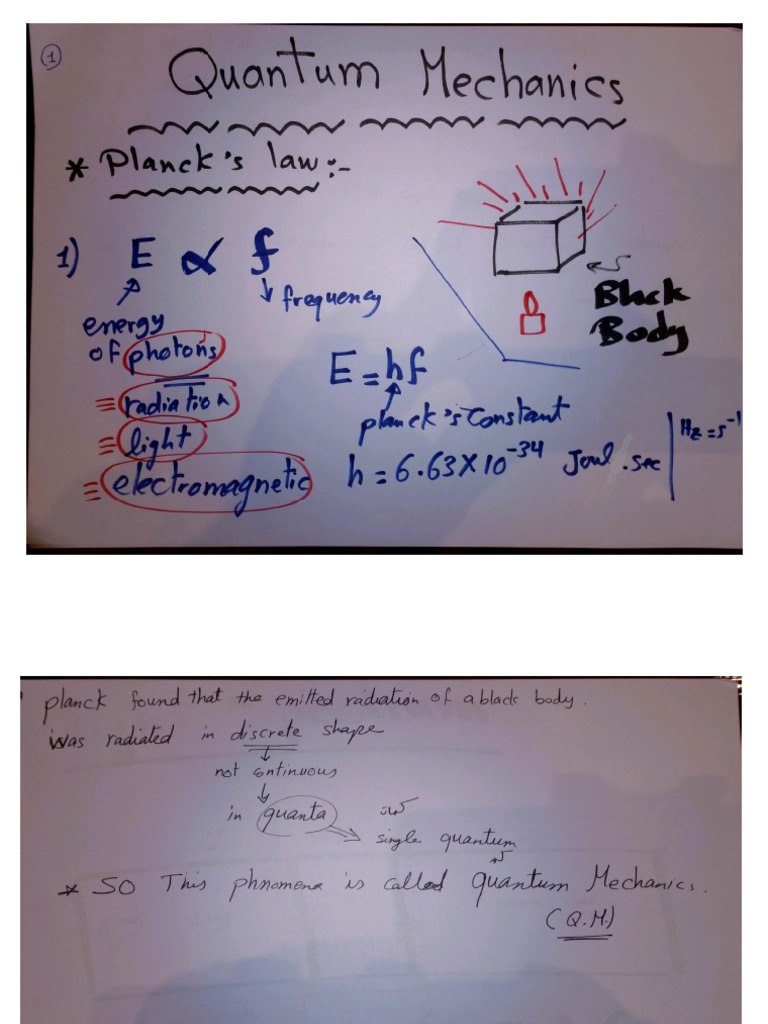 1
Quantum Mechanics
* Planck's law:-
1) E ∝ f
frequency
energy
of photons
≡ radiation
≡ light
≡ electromagnetic
Black
Body
E = hf
planck's Constant
h = 6.63 × 10⁻³⁴ Joul . sec
Hz = s⁻¹
planck found that the emitted radiation of a black body.
was radiated in discrete shape
not continuous
in quanta
single quantum
* SO This phnomena is called quantum Mechanics.
(Q.M.)